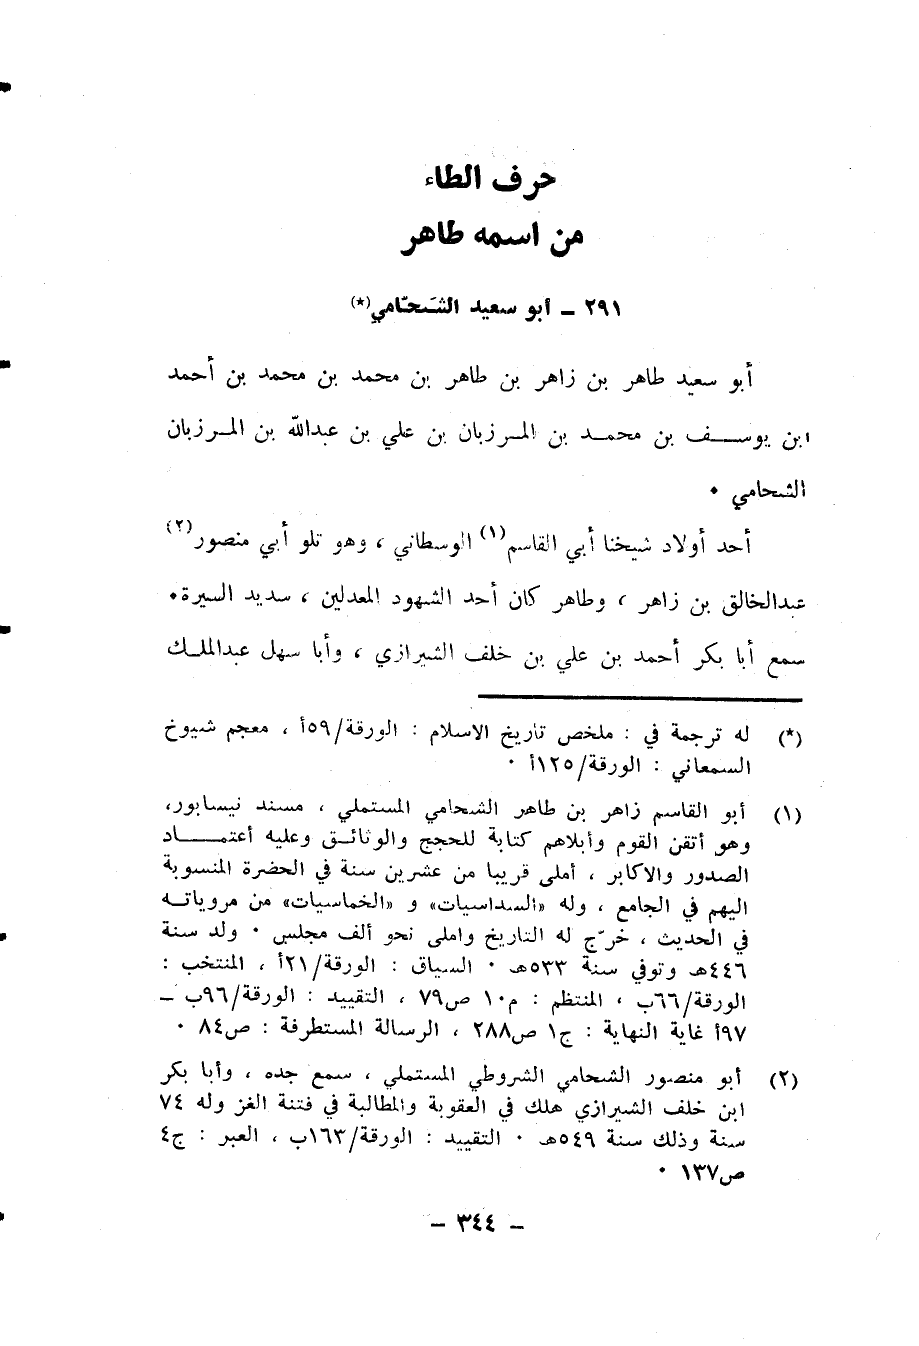 حرف الطاء
من اسمه طاهر
٢٩١ ـ أبو سعيد الشَحّامي(*)
أبو سعيد طاهر بن زاهر بن طاهر بن محمد بن محمد بن أحمد
ابن يوسف بن محمد بن المرزبان بن علي بن عبدالله بن المرزبان
الشحامي ٠
أحد أولاد شيخنا أبي القاسم(١) الوسطاني ، وهو تلو أبي منصور(٢)
عبدالخالق بن زاهر ، وطاهر كان أحد الشهود المعدلين ، سديد السيرة٠
سمع أبا بكر أحمد بن علي بن خلف الشيرازي ، وأبا سهل عبدالملك
(*) له ترجمة في : ملخص تاريخ الاسلام : الورقة/٥٩أ ، معجم شيوخ
السمعاني : الورقة/١٢٥أ ٠
(١) أبو القاسم زاهر بن طاهر الشحامي المستملي ، مسند نيسابور،
وهو أتقن القوم وأبلاهم كتابة للحجج والوثائق وعليه أعتماد
الصدور والاكابر ، أملى قريبا من عشرين سنة في الحضرة المنسوبة
اليهم في الجامع ، وله «السداسيات» و «الخماسيات» من مروياته
في الحديث ، خرّج له التاريخ واملى نحو ألف مجلس ٠ ولد سنة
٤٤٦هـ وتوفي سنة ٥٣٣هـ ٠ السياق : الورقة/٢١أ ، المنتخب :
الورقة/٦٦ب ، المنتظم : م١٠ ص٧٩ ، التقييد : الورقة/٩٦ب ـ
٩٧أ غاية النهاية : ج١ ص٢٨٨ ، الرسالة المستطرفة : ص٨٤ ٠
(٢) أبو منصور الشحامي الشروطي المستملي ، سمع جده ، وأبا بكر
ابن خلف الشيرازي هلك في العقوبة والمطالبة في فتنة الغز وله ٧٤
سنة وذلك سنة ٥٤٩هـ ٠ التقييد : الورقة/١٦٣ب ، العبر : ج٤
ص١٣٧ ٠
ـ ٣٤٤ ـ